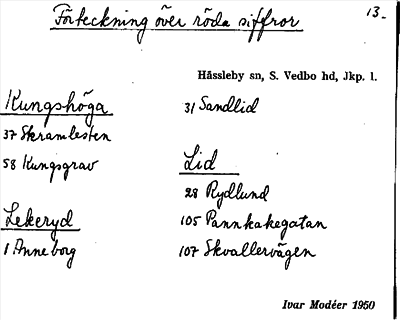 Förteckning över röda siffror
13.
Hässleby sn, S. Vedbo hd, Jkp. l.
Kungshöga
37 Skramlesten
58 Kungsgrav
Lekeryd
1 Anneborg
31 Sandlid
Lid
28 Rydlund
105 Pannkakegatan
107 Skvallervägen
Ivar Modéer 1950